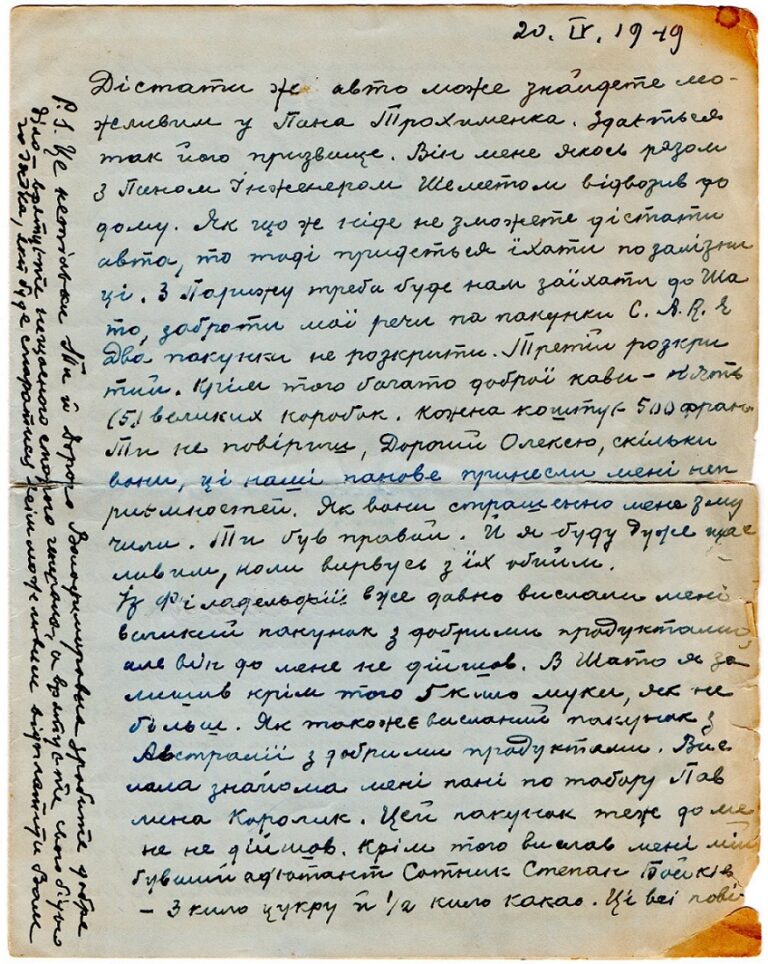 20. IV. 1949
Дістати же авто може знайдете мо-
жливим у Пана Трохименка. Здається
так його призвище. Він мене якось разом
з Паном Інженером Шеметом відвозив до
дому. Як що ж ніде не зможете дістати
авта, то тоді придеться їхати по залізни
ці. З Парижу треба буде нам заїхати до Ша
то, забрати мої речи та пакунки С. А. R. E
Два пакунки не розкрити. Третій розкри
тий. Крім того багато доброї кави – пять
(5) великих коробок. Кожна коштує 500 фран.
Ти не повіриш, Дорогий Олексю, скільки
вони, ці наші панове принесли мені неп
риємностей. Як вони страшенно мене зму
чили. Ти був правий. Й я буду дуже щас
ливим, коли вирвусь з їх обійм.
Із Філадельфії вже давно вислали мені
великий пакунок з добрими продуктами,
але він до мене не дійшов. В Шато я за
лишив крім того 5 кіло муки, як не
більш. Як також є висланий пакунок з
Австралії з добрими продуктами. Вис
лала знайома мені пані по табору Пав
лина Королик. Цей пакунок теж до ме
не не дійшов. Крім того вислав мені мій
бувший адютант Сотник Степан Бойків
– 3 кило цукру й 1/2 кило какао. Ці всі пові
P.S. Це нетільки Ти й Дорога Володимировна зробите добре
діло – врятуєте нещасного старого генерала, а врятуєте свого бідного
дядька, який буде старатися всіми можливими відплатити Вам